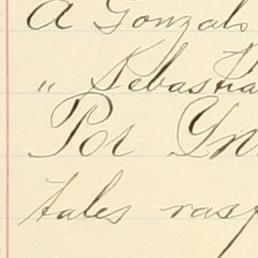 A Gonzalo
" Sebastia
Por Yn
tales rasp